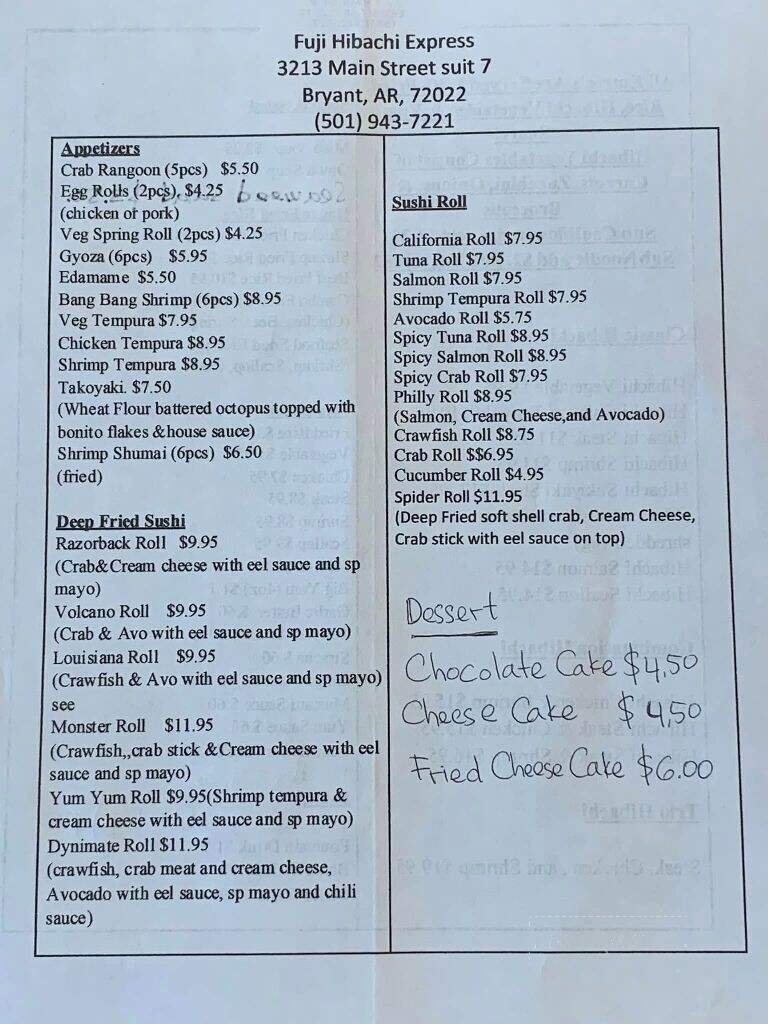 Fuji Hibachi Express
3213 Main Street suit 7
Bryant, AR, 72022
(501) 943-7221
Appetizers
Crab Rangoon (5pcs) $5.50
Egg Rolls (2pcs). $4.25
(chicken or pork)
Veg Spring Roll (2pcs) $4.25
Gyoza (6pcs) $5.95
Edamame $5.50
Bang Bang Shrimp (6pcs) $8.95
Veg Tempura $7.95
Chicken Tempura $8.95
Shrimp Tempura $8.95
Takoyaki. $7.50
(Wheat Flour battered octopus topped with
bonito flakes &house sauce)
Shrimp Shumai (6pcs) $6.50
(fried)
Deep Fried Sushi
Razorback Roll $9.95
(Crab&Cream cheese with eel sauce and sp
mayo)
Volcano Roll $9.95
(Crab & Avo with eel sauce and sp mayo)
Louisiana Roll $9.95
(Crawfish & Avo with eel sauce and sp mayo)
see
Monster Roll $11.95
(Crawfish,,crab stick &Cream cheese with eel
sauce and sp mayo)
Yum Yum Roll $9.95(Shrimp tempura &
cream cheese with eel sauce and sp mayo)
Dynimate Roll $11.95
(crawfish, crab meat and cream cheese,
Avocado with eel sauce, sp mayo and chili
sauce)
Sushi Roll
California Roll $7.95
Tuna Roll $7.95
Salmon Roll $7.95
Shrimp Tempura Roll $7.95
Avocado Roll $5.75
Spicy Tuna Roll $8.95
Spicy Salmon Roll $8.95
Spicy Crab Roll $7.95
Philly Roll $8.95
(Salmon, Cream Cheese,and Avocado)
Crawfish Roll $8.75
Crab Roll $$6.95
Cucumber Roll $4.95
Spider Roll $11.95
(Deep Fried soft shell crab, Cream Cheese,
Crab stick with eel sauce on top)
Dessert
Chocolate Cake $4,50
Cheese Cake $4,50
Fried Cheese Cake $6.00